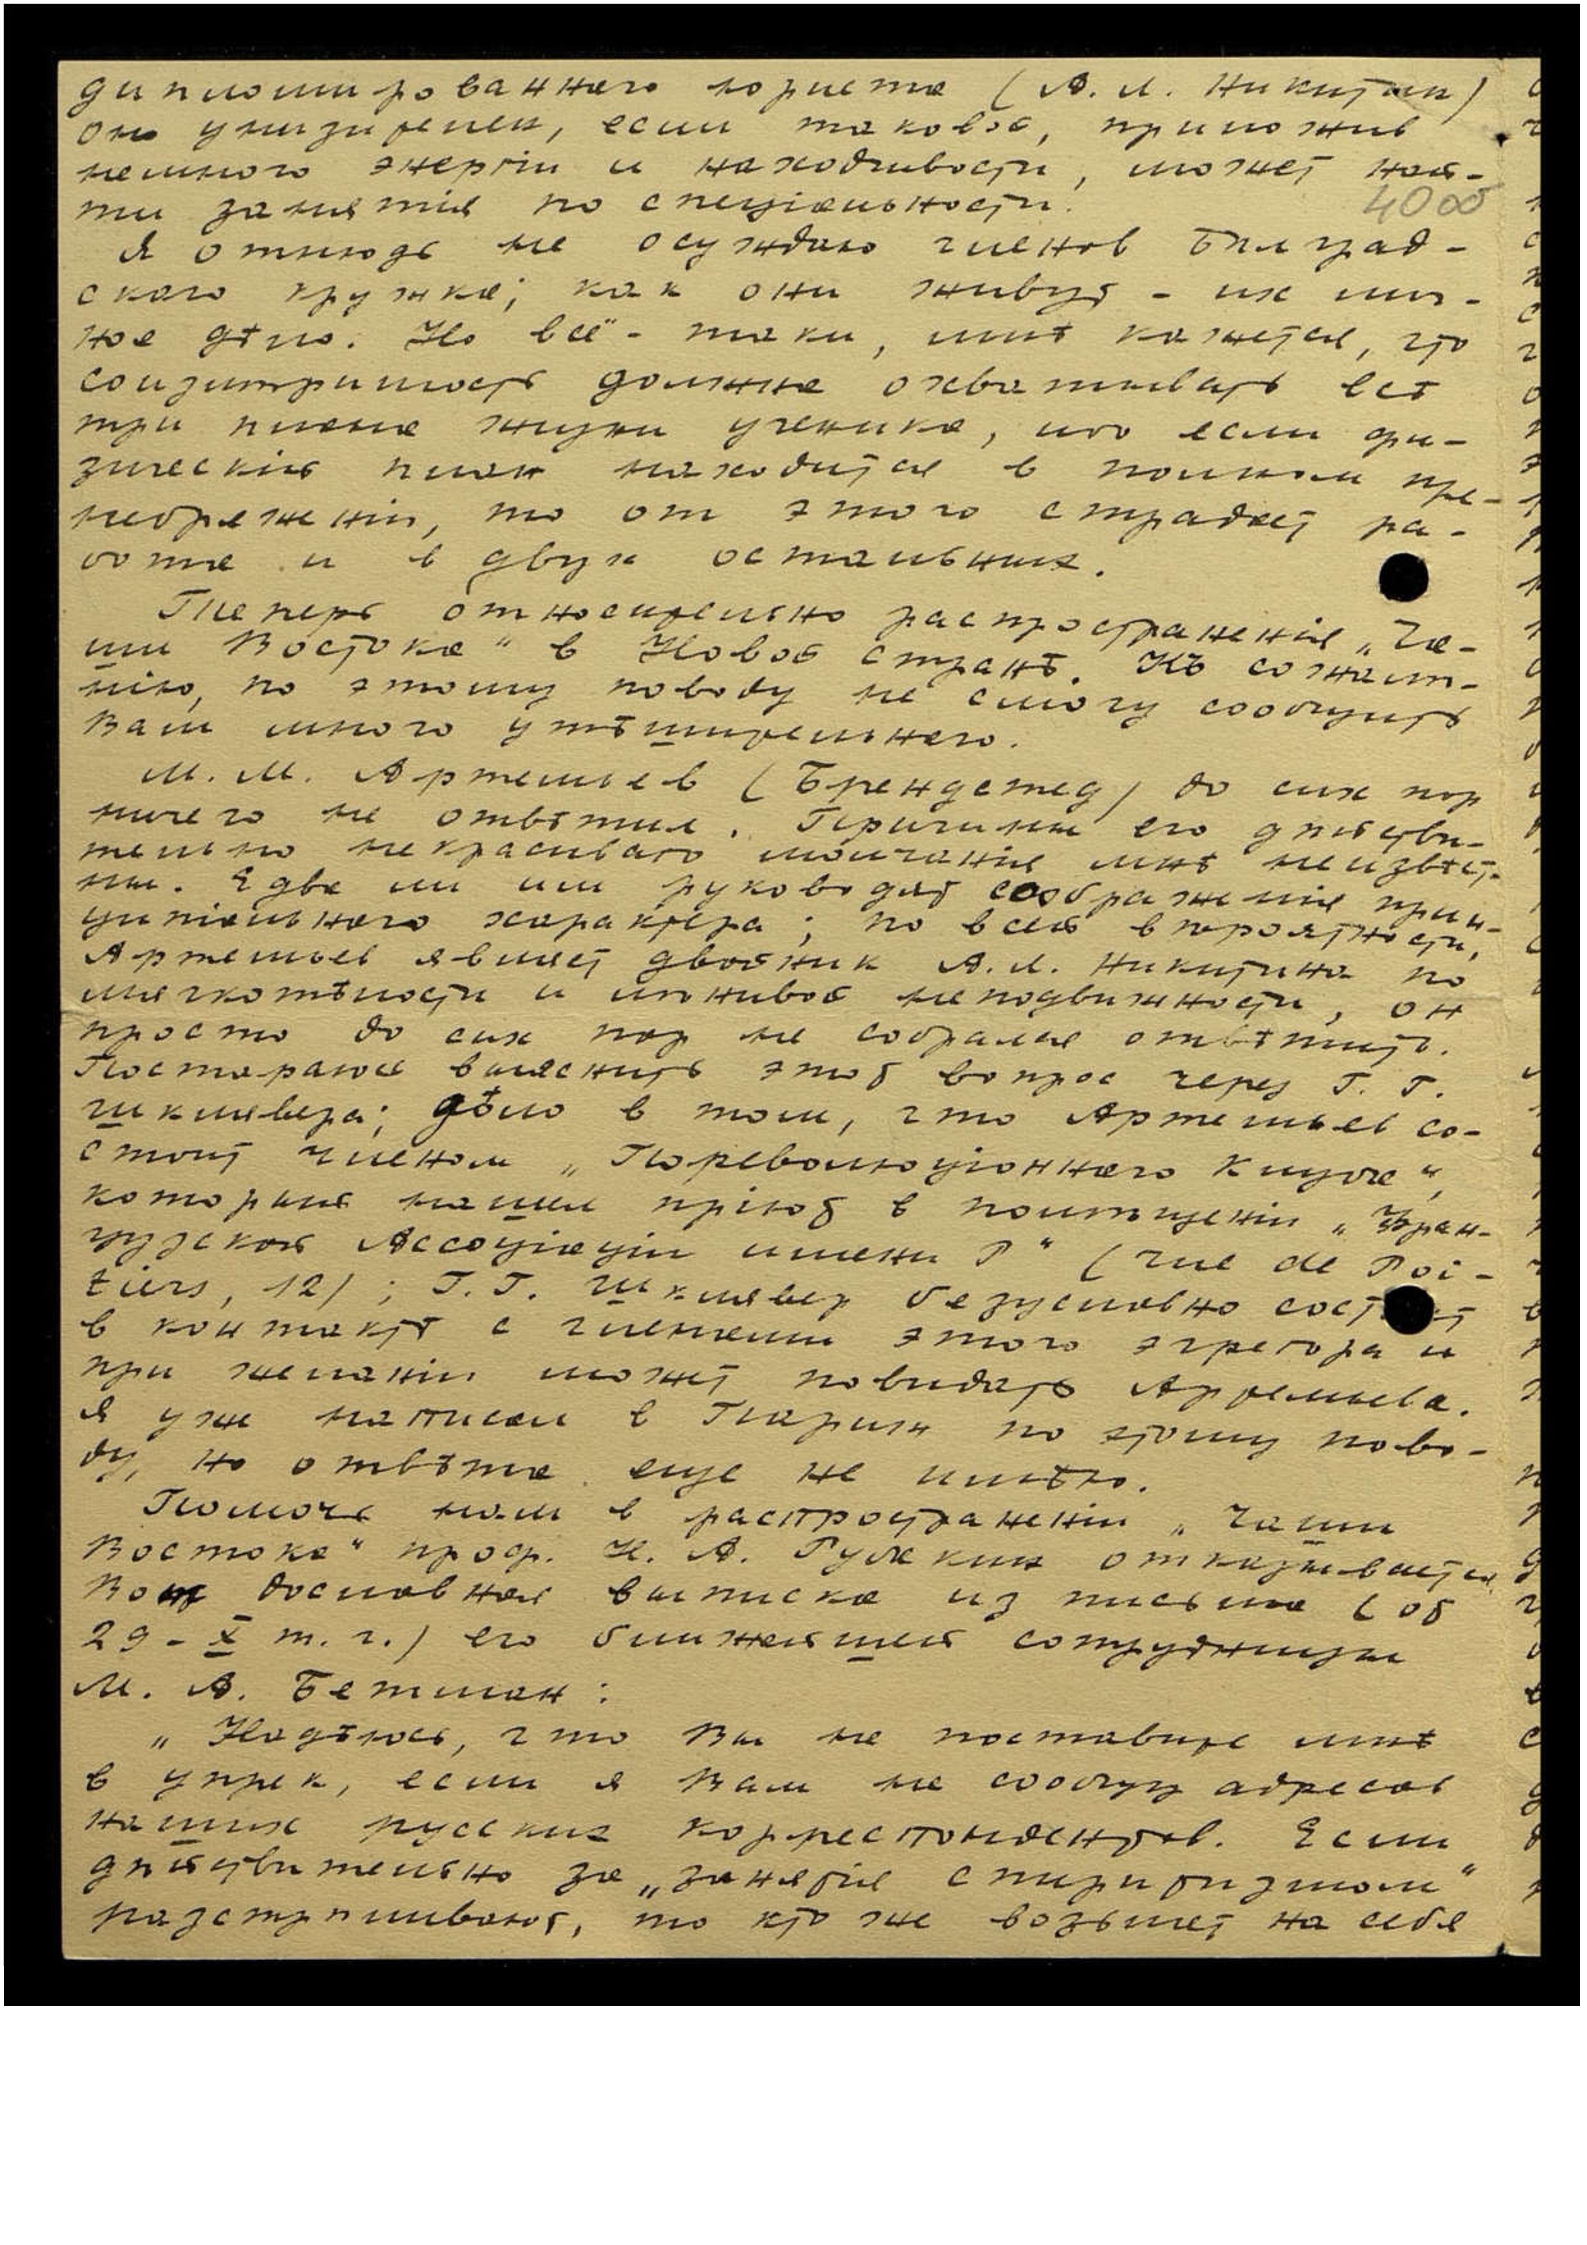 дипломированнаго юриста (А. Л. Никитин)
он унизителен, если таковой, приложив
немного энергіи и находчивости, может най-
ти занятія по спеціальности.
4000
Я отнюдь не осуждаю членов Бѣлград-
скаго кружка; как они живут - их лич-
ное дѣло. Но всё-таки, мнѣ кажется, что
соизмѣримость должна охватывать всѣ
три плана жизни ученика, ибо если фи-
зическій план находится в полном пре-
небреженіи, то от этого страдает ра-
бота и в двух остальных.
Теперь относительно распространенія „Ча-
ши Востока“ в Новой странѣ. Къ сожалѣ-
нію, по этому поводу не смогу сообщить
Вам много утѣшительнаго.
М. М. Артемьев (Брендстед) до сих пор
ничего не отвѣтил. Причины его дѣйстви-
тельно некрасиваго молчанія мнѣ неизвѣст-
ны. Едва ли им руководят соображенія прин-
ципіальнаго характера; по всей вѣроятности,
Артемьев являет двойник А. Л. Никитина по
мягкотѣлости и лѣнивой неподвижности, он
просто до сих пор не собрался отвѣтить.
Постараюсь выяснить этот вопрос через Г. Г.
Шклявера; дѣло в том, что Артемьев со-
стоит членом „Пореволюціоннаго Клуба“,
который нашел пріют в помѣщеніи „Фран-
цузской Ассоціаціи имени Р“ (rue de Poi-
tiers, 12); Г. Г. Шклявер безусловно состоит
в контактѣ с членами этого эгрегора и
при желаніи может повидать Артемьева.
Я уже написал в Париж по этому пово-
ду, но отвѣта еще не имѣю.
Помочь нам в распространеніи „Чаши
Востока“ проф. Н. А. Рубакин отказывается.
Вот дословная выписка из письма (от
29-X т. г.) его ближайшей сотрудницы
М. А. Бетман:
„Надѣюсь, что Вы не поставите мнѣ
в упрек, если я Вам не сообщу адресов
наших русских корреспондентов. Если
дѣйствительно за „занятія спиритизмом“
разстрѣливают, то кто же возьмет на себя